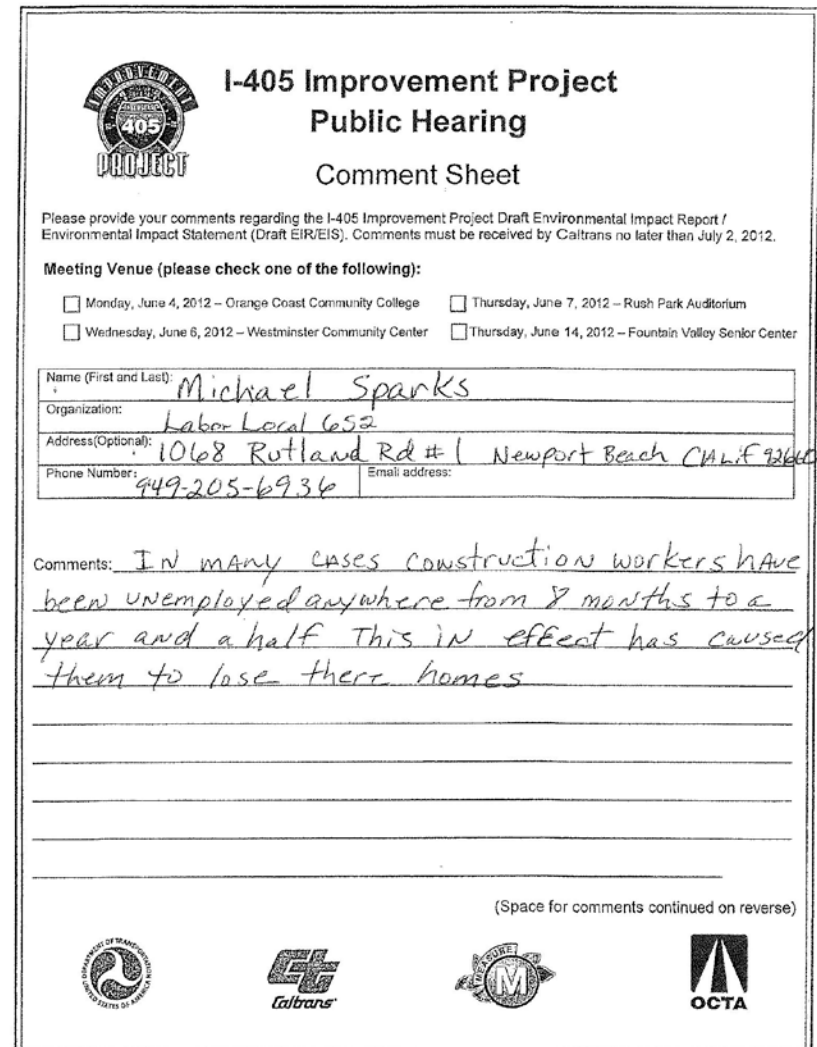 IMPROVEMENT
405
PROJECT
I-405 Improvement Project
Public Hearing
Comment Sheet
Please provide your comments regarding the I-405 Improvement Project Draft Environmental Impact Report /
Environmental Impact Statement (Draft EIR/EIS). Comments must be received by Caltrans no later than July 2, 2012.
Meeting Venue (please check one of the following):
Monday, June 4, 2012 – Orange Coast Community College
Thursday, June 7, 2012 – Rush Park Auditorium
Wednesday, June 6, 2012 – Westminster Community Center
Thursday, June 14, 2012 – Fountain Valley Senior Center
Name (First and Last): Michael Sparks
Organization: Labor Local 652
Address(Optional): 1068 Rutland Rd # 1 Newport Beach CALif 92660
Phone Number: 949-205-6936 Email address:
Comments: IN mANY CASES CONstructioN workers hAve
beeN UNemployed anywhere from 8 moNths to a
year aNd a half This iN effect has caused
them to lose there homes
(Space for comments continued on reverse)
DEPARTMENT OF TRANSPORTATION
UNITED STATES OF AMERICA
Caltrans
MEASURE
M
OCTA